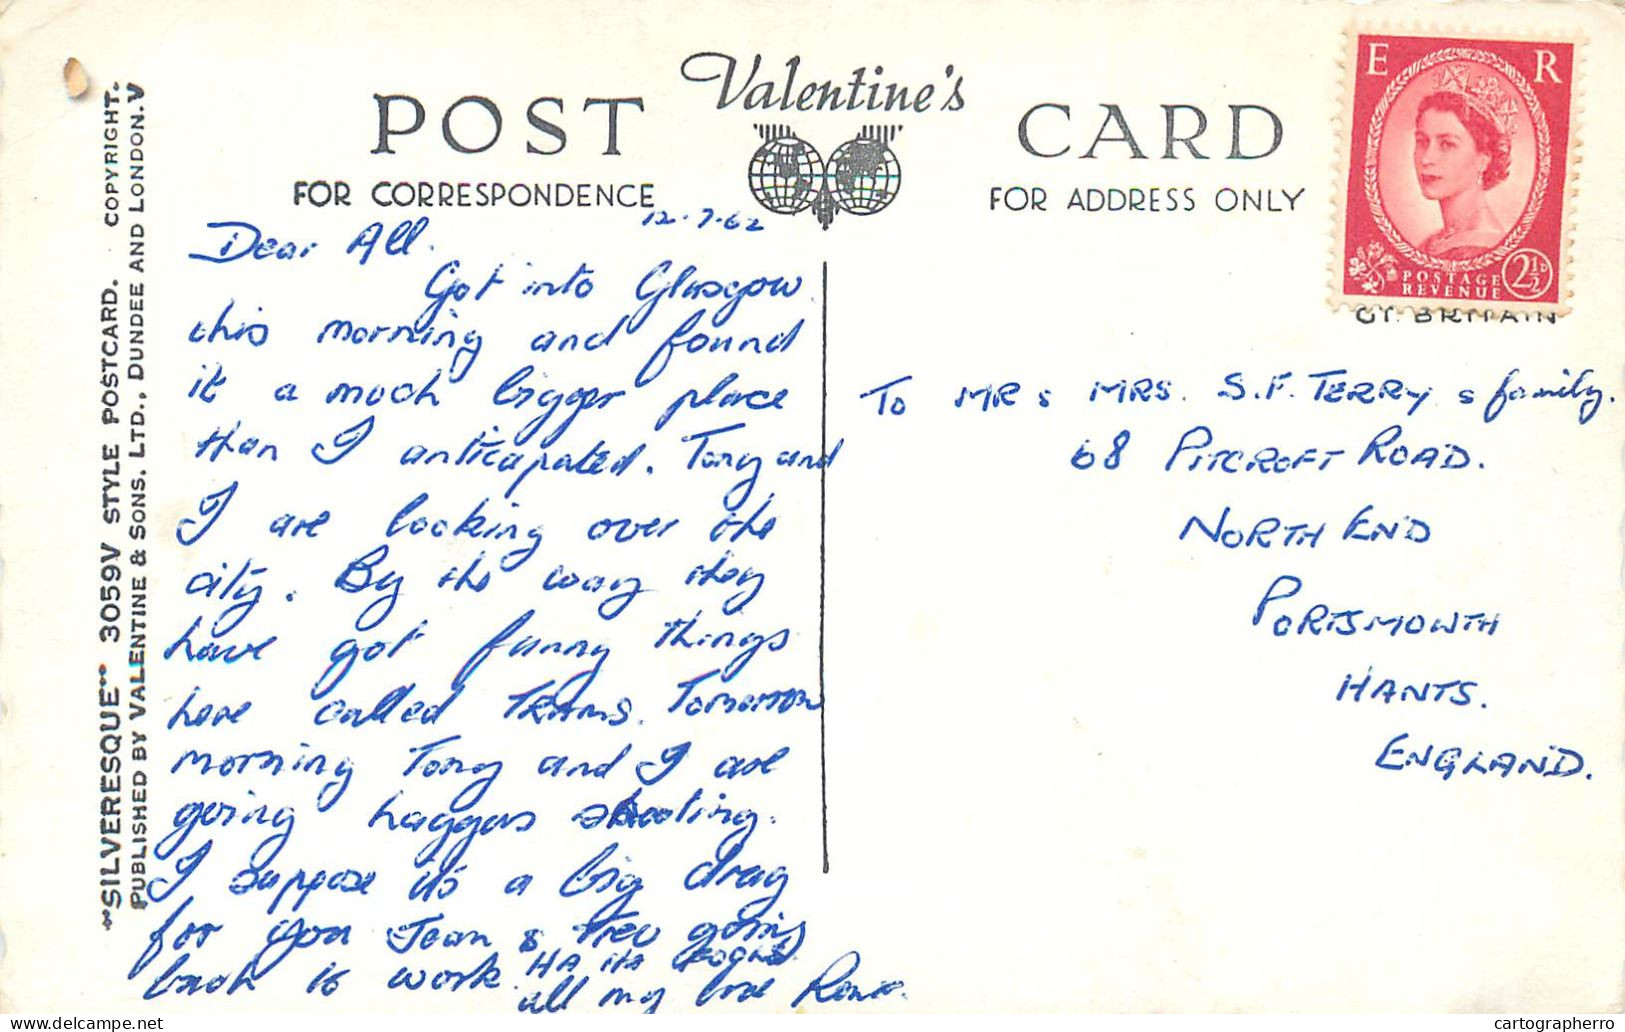 Valentine's
POST CARD
FOR CORRESPONDENCE
FOR ADDRESS ONLY
E R
POSTAGE
REVENUE
2½D
GT. BRITAIN
"SILVERESQUE" 3059V STYLE POSTCARD. COPYRIGHT.
PUBLISHED BY VALENTINE & SONS. LTD., DUNDEE AND LONDON. V
12.7.62
Dear All.
Got into Glasgow
this morning and found
it a much bigger place
than I anticapated. Tony and
I are looking over the
city. By the way they
have got funny things
here called TRAMS. Tomorrow
morning Tony and I are
going haggus shooting.
I suppose its a big drag
for you Jean & Trev going
back to work. HA HA
all my love
To MR & MRS. S.F. TERRY & family.
68 PITCROFT ROAD.
NORTH END
PORTSMOUTH
HANTS.
ENGLAND.
cartographerro